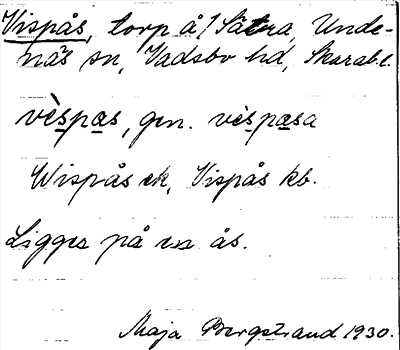 Vispås, torp å Sätra, Unde-
näs sn, Vadsbo hd, Skarab.l.
vèspas, gen. vèspasa
Wispås ek, Vispås kb.
Ligger på en ås.
Maja Bergstrand 1930.